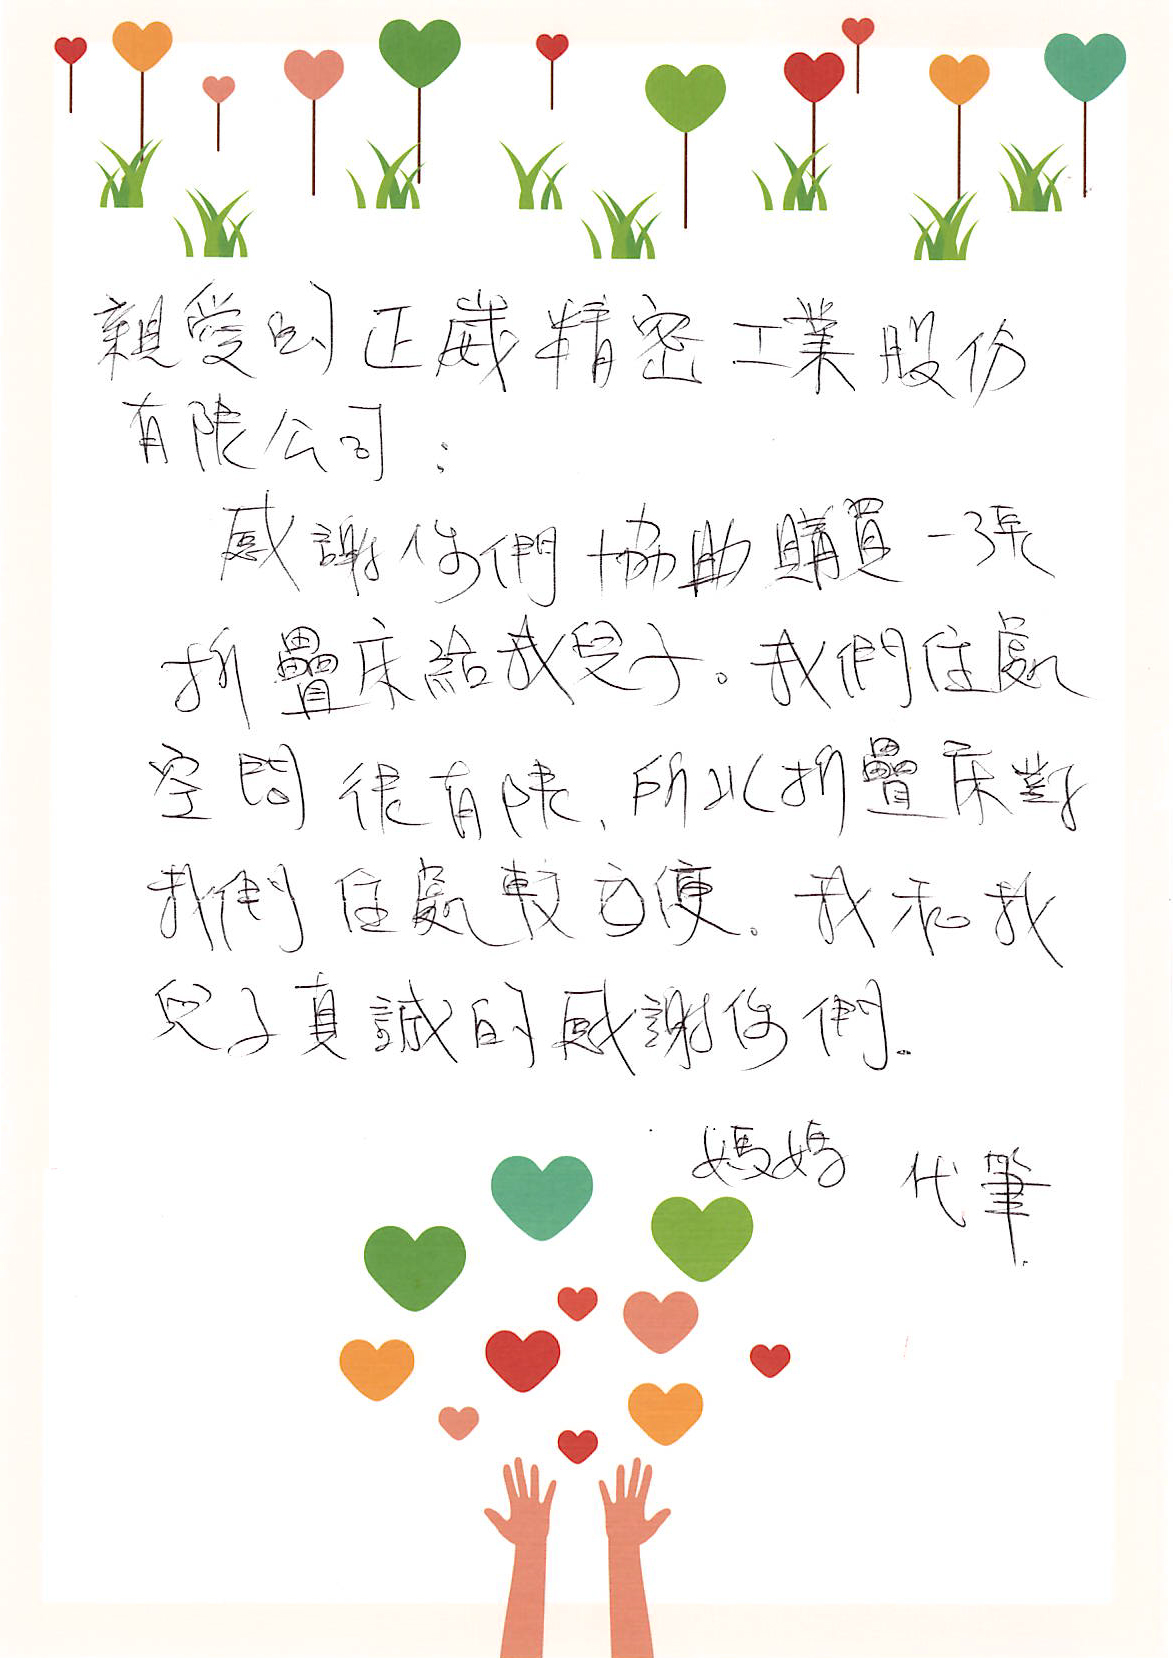 親愛的正崴精密工業股份
有限公司：
感謝你們協助購買一張
折疊床給我兒子。我們住處
空間很有限，所以折疊床對
我們住處較方便。我和我
兒子真誠的感謝你們。
媽媽 代筆